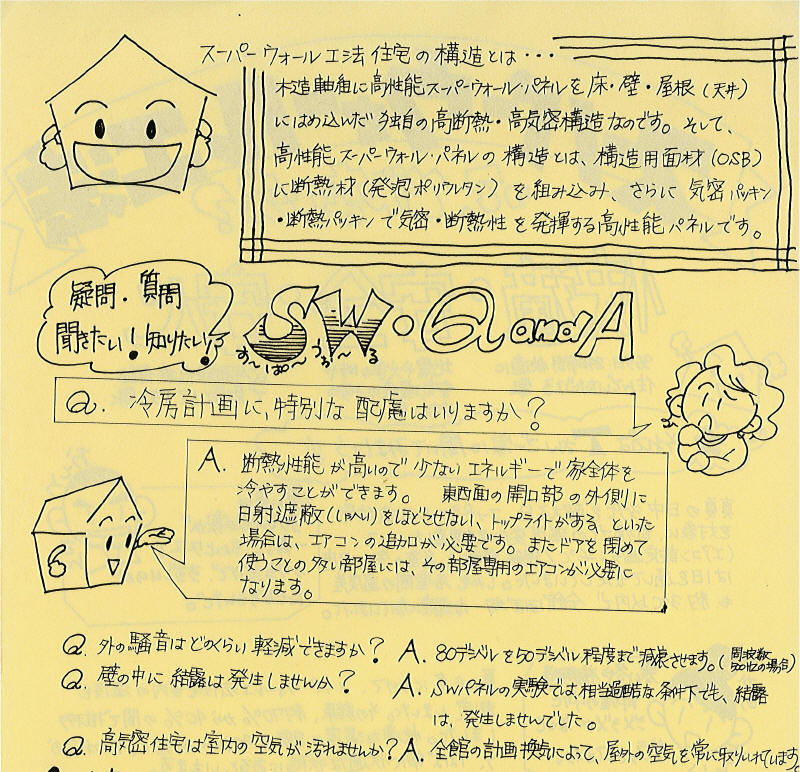 スーパーウォール工法住宅の構造とは・・・
木造軸組に高性能スーパーウォールパネルを床・壁・屋根(天井)
にはめ込んだ独自の高断熱・高気密構造なのです。そして、
高性能スーパーウォール・パネルの構造とは、構造用面材(OSB)
に断熱材(発泡ポリウレタン)を組み込み、さらに気密パッキン
・断熱パッキンで気密・断熱性を発揮する高性能パネルです。
疑問・質問
聞きたい!知りたい!
SW・Q and A
す〜ぱ〜うぉ〜る
Q. 冷房計画に、特別な配慮はいりますか?
A. 断熱性能が高いので少ないエネルギーで家全体を
冷やすことができます。 東西面の開口部の外側に
日射遮蔽(しゃへい)をほどこせない、トップライトがある、といった
場合は、エアコンの追加が必要です。またドアを閉めて
使うことの多い部屋には、その部屋専用のエアコンが必要に
なります。
Q. 外の騒音はどのくらい軽減できますか? A. 80デシベルを50デシベル程度まで減衰させます。(周波数500Hzの場合)
Q. 壁の中に結露は発生しませんか? A. SWパネルの実験では相当過酷な条件下でも、結露
は、発生しませんでした。
Q. 高気密住宅は室内の空気が汚れませんか? A. 全館の計画換気によって、屋外の空気を常に取り入れています。